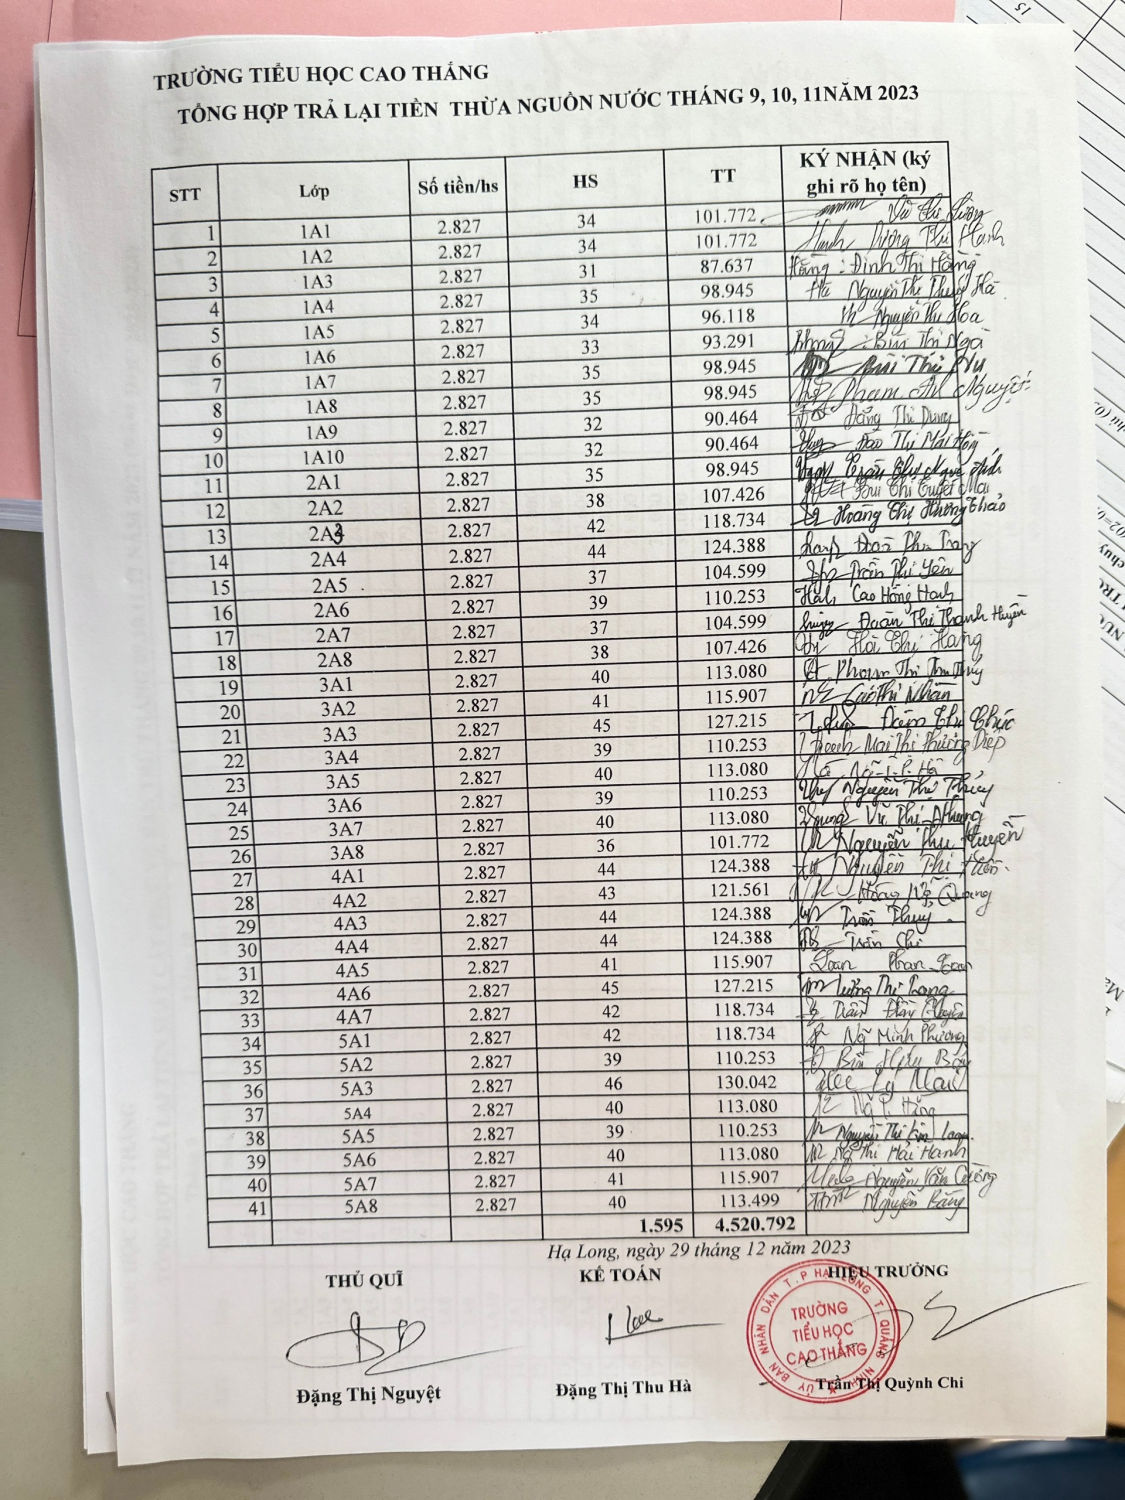 TRƯỜNG TIỂU HỌC CAO THẮNG
TỔNG HỢP TRẢ LẠI TIỀN THỪA NGUỒN NƯỚC THÁNG 9, 10, 11NĂM 2023
STT Lớp Số tiền/hs HS TT KÝ NHẬN (ký
ghi rõ họ tên)
1 1A1 2.827 34 101.772 Vũ Thị
2 1A2 2.827 34 101.772 Hạnh Dương Thị Hạnh
3 1A3 2.827 31 87.637 Hằng Đinh Thị Hằng
4 1A4 2.827 35 98.945 Hà Nguyễn Thị Thuý Hà
5 1A5 2.827 34 96.118 Nguyễn Thu Hoa
6 1A6 2.827 33 93.291 Bùi Thị Nga
7 1A7 2.827 35 98.945 Bùi Thu
8 1A8 2.827 35 98.945 Phạm Nguyệt
9 1A9 2.827 32 90.464 Hoàng Thị Dung
10 1A10 2.827 32 90.464 Đào Thị Mai
11 2A1 2.827 35 98.945 Trần
12 2A2 2.827 38 107.426 Bùi Thị Tuyết Mai
13 2A3 2.827 42 118.734 Hoàng Thị Hương Thảo
14 2A4 2.827 44 124.388 Đoàn Thu Trang
15 2A5 2.827 37 104.599 Trần Thị Yên
16 2A6 2.827 39 110.253 Hạnh Cao Hồng Hạnh
17 2A7 2.827 37 104.599 Đoàn Thị Thanh Huyền
18 2A8 2.827 38 107.426 Thị Hằng
19 3A1 2.827 40 113.080 Phạm Thị Thu Thủy
20 3A2 2.827 41 115.907 Thị Nhàn
21 3A3 2.827 45 127.215 Đàm Thị Chúc
22 3A4 2.827 39 110.253 Mai Thị Phương Diệp
23 3A5 2.827 40 113.080
24 3A6 2.827 39 110.253 Nguyễn Thị Thúy
25 3A7 2.827 40 113.080 Vũ Thị
26 3A8 2.827 36 101.772 Nguyễn Thu Huyền
27 4A1 2.827 44 124.388 Nguyễn Thị Hiền
28 4A2 2.827 43 121.561 Quang
29 4A3 2.827 44 124.388 Trần Thuý
30 4A4 2.827 44 124.388 Trần Chi
31 4A5 2.827 41 115.907 Loan Phan Loan
32 4A6 2.827 45 127.215 Lương Thị
33 4A7 2.827 42 118.734 Trần
34 5A1 2.827 42 118.734 Minh Phương
35 5A2 2.827 39 110.253 Bùi
36 5A3 2.827 46 130.042 Lý Mai
37 5A4 2.827 40 113.080 Hằng
38 5A5 2.827 39 110.253 Nguyễn Thị Kim Loan
39 5A6 2.827 40 113.080 Ngô Thị Hải Hạnh
40 5A7 2.827 41 115.907 Nguyễn Văn Cường
41 5A8 2.827 40 113.499 Nguyễn Bằng
1.595 4.520.792
Hạ Long, ngày 29 tháng 12 năm 2023
THỦ QUĨ KẾ TOÁN HIỆU TRƯỞNG
ỦY BAN NHÂN DÂN T.P HẠ LONG T. QUẢNG NINH
TRƯỜNG
TIỂU HỌC
CAO THẮNG
Đặng Thị Nguyệt Đặng Thị Thu Hà Trần Thị Quỳnh Chi